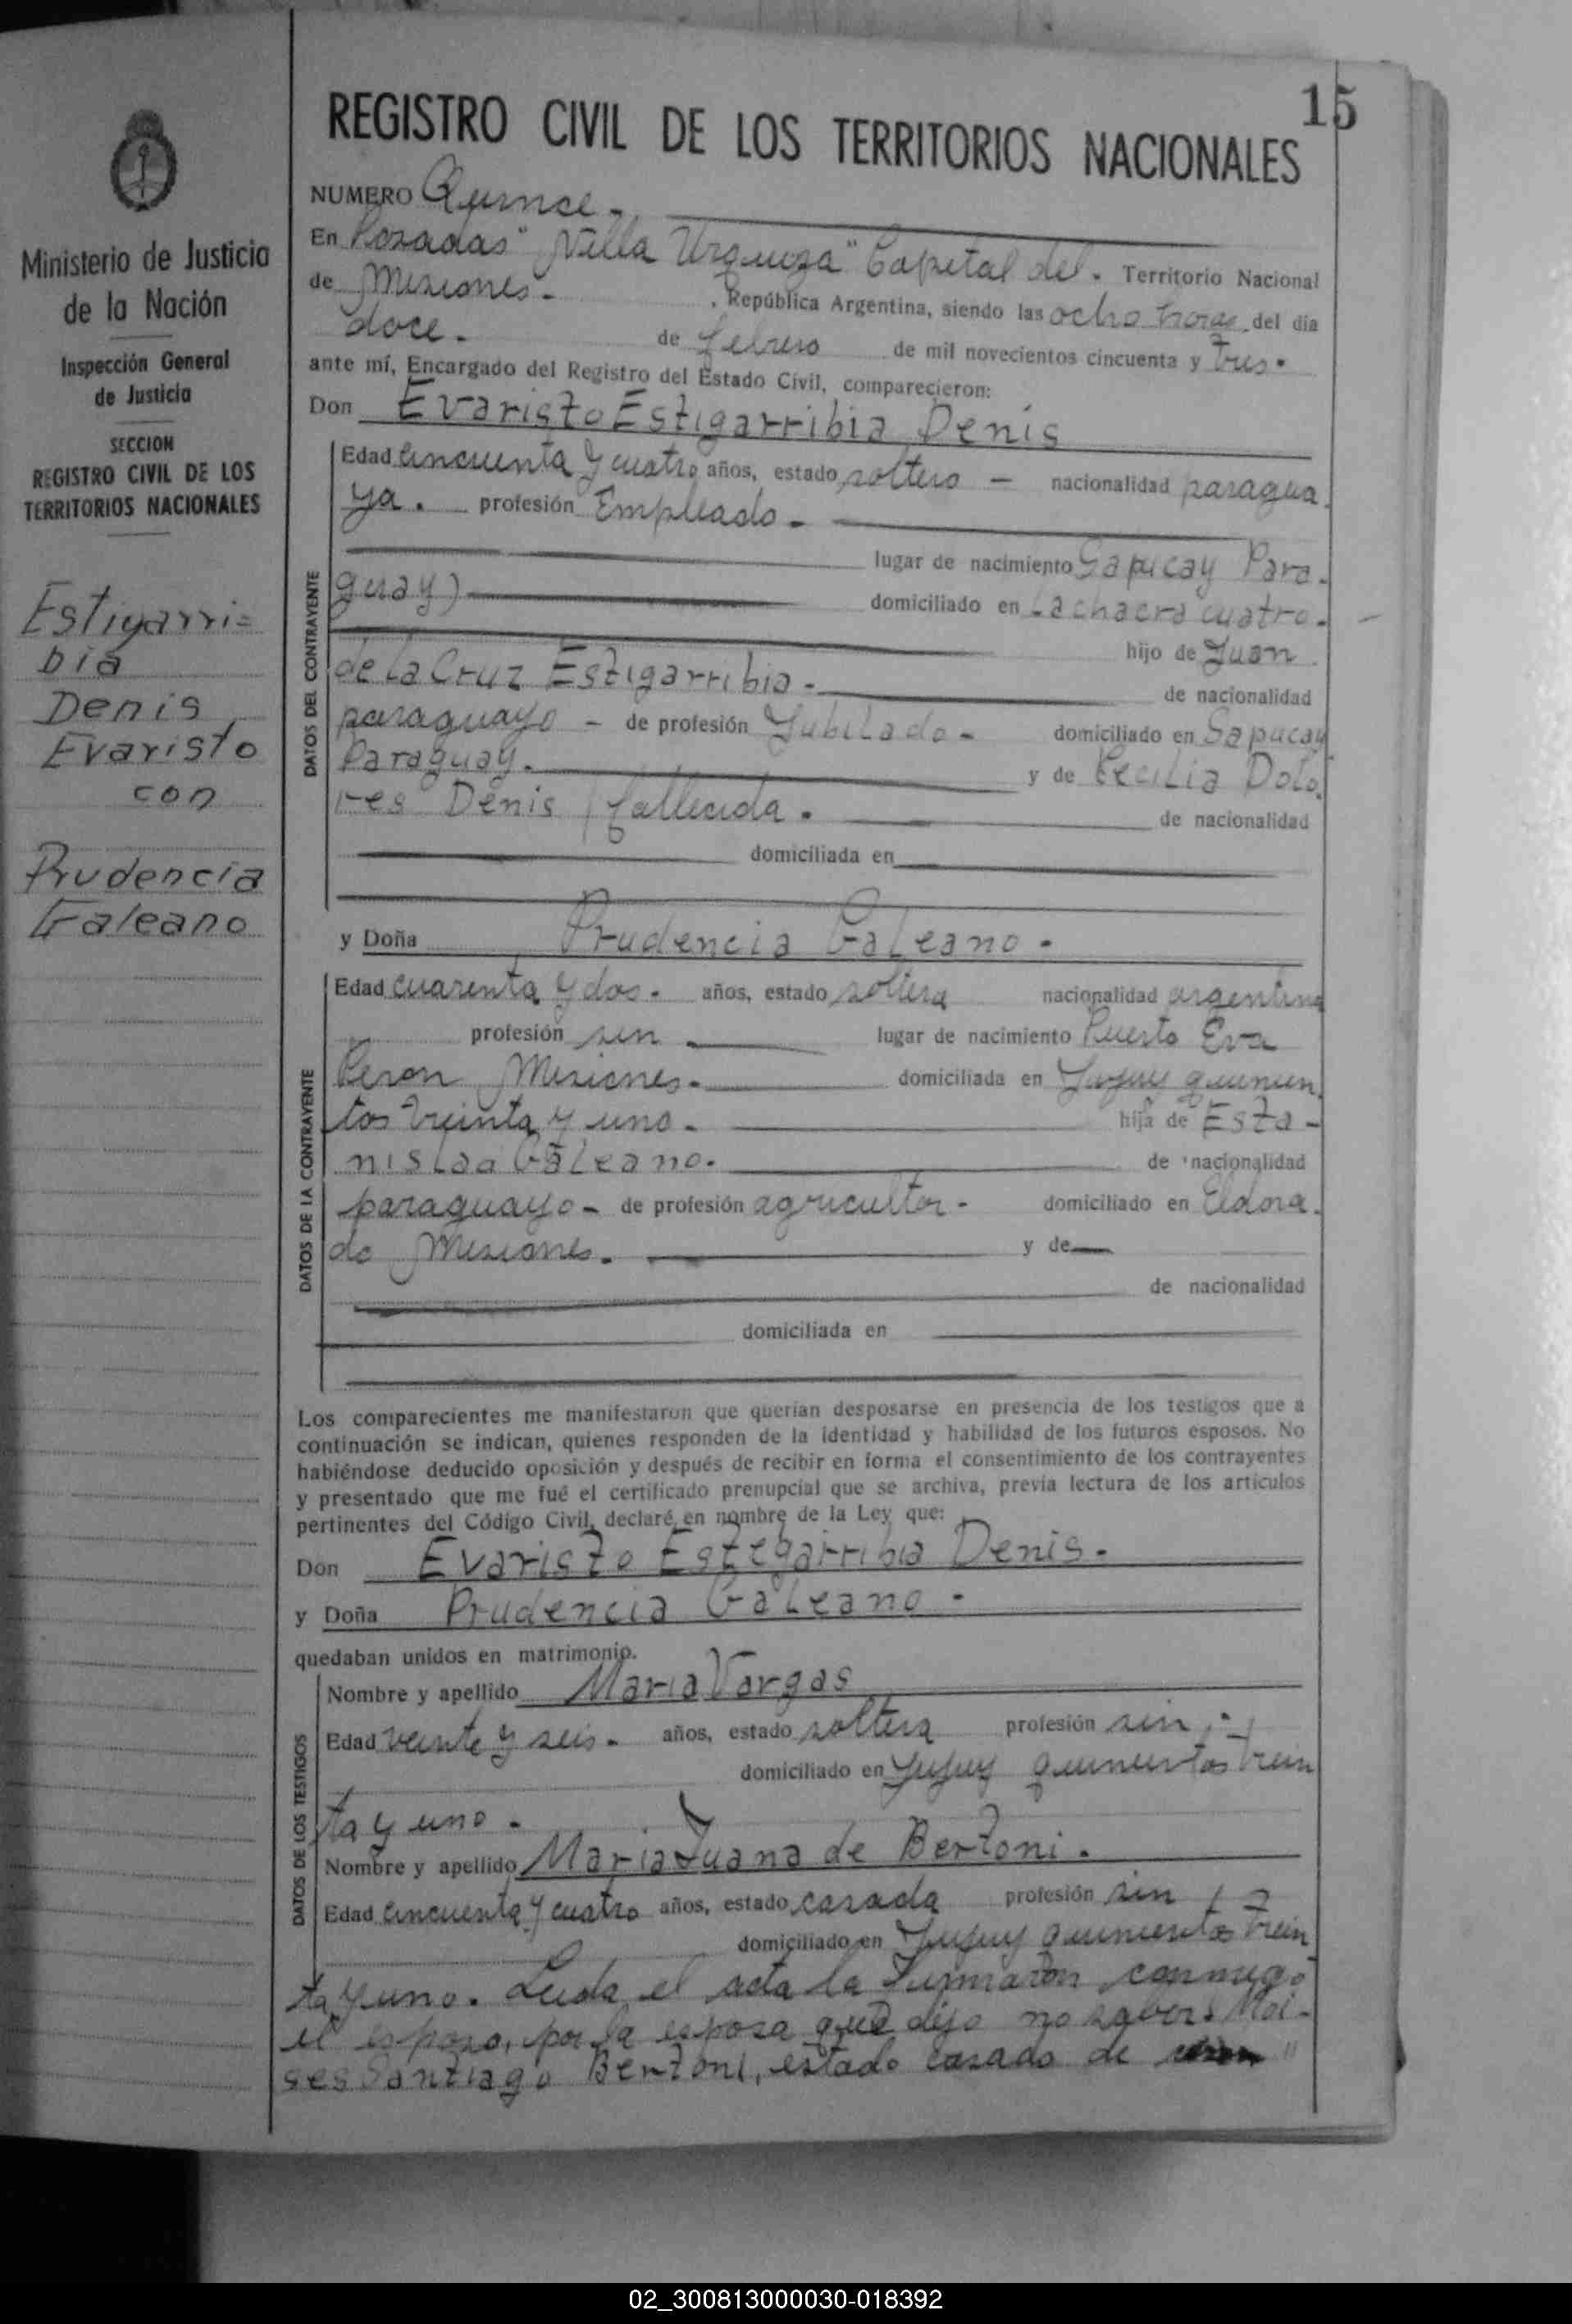 15
REGISTRO CIVIL DE LOS TERRITORIOS NACIONALES
Ministerio de Justicia
de la Nación
Inspección General
de Justicia
SECCION
REGISTRO CIVIL DE LOS
TERRITORIOS NACIONALES
Estigarri=
bia
Denis
Evaristo
con
Prudencia
Galeano
NUMERO Quince.
En Posadas "Villa Urquiza" Capital del. Territorio Nacional
de Misiones. , República Argentina, siendo las ocho horas del día
doce. de febrero de mil novecientos cincuenta y tres.
ante mí, Encargado del Registro del Estado Civil, comparecieron:
Don Evaristo Estigarribia Denis
DATOS DEL CONTRAYENTE
Edad cincuenta y cuatro años, estado soltero – nacionalidad paragua
ya. profesión Empleado.
lugar de nacimiento Sapucay Para.
guay) domiciliado en Lachacra cuatro.
hijo de Juan
de la Cruz Estigarribia. de nacionalidad
paraguayo – de profesión Jubilado – domiciliado en Sapucay
Paraguay. y de Cecilia Dolo.
res Denis fallecida. de nacionalidad
domiciliada en
y Doña Prudencia Galeano.
DATOS DE LA CONTRAYENTE
Edad cuarenta y dos. años, estado soltera nacionalidad argentina
profesión sin lugar de nacimiento Puerto Eva
Peron Misiones. domiciliada en Jujuy quinien.
tos treinta y uno. hija de Esta-
nislao Galeano. de nacionalidad
paraguayo – de profesión agricultor – domiciliado en Eldora.
do Misiones. y de
de nacionalidad
domiciliada en
Los comparecientes me manifestaron que querían desposarse en presencia de los testigos que a
continuación se indican, quienes responden de la identidad y habilidad de los futuros esposos. No
habiéndose deducido oposición y después de recibir en forma el consentimiento de los contrayentes
y presentado que me fué el certificado prenupcial que se archiva, previa lectura de los artículos
pertinentes del Código Civil, declaré en nombre de la Ley que:
Don Evaristo Estegarribia Denis.
y Doña Prudencia Galeano.
quedaban unidos en matrimonio.
DATOS DE LOS TESTIGOS
Nombre y apellido Maria Vargas
Edad veinte y seis. años, estado soltera profesión sin
domiciliado en Jujuy quinientos trein
ta y uno.
Nombre y apellido Maria Juana de Bertoni.
Edad cincuenta y cuatro años, estado casada profesión sin
domiciliado en Jujuy quinientos trein
ta y uno. Leida el acta la firmaron conmigo
el esposo, por la esposa que dijo no saber. Moi-
ses Santiago Bertoni, estado casado de
02_300813000030-018392